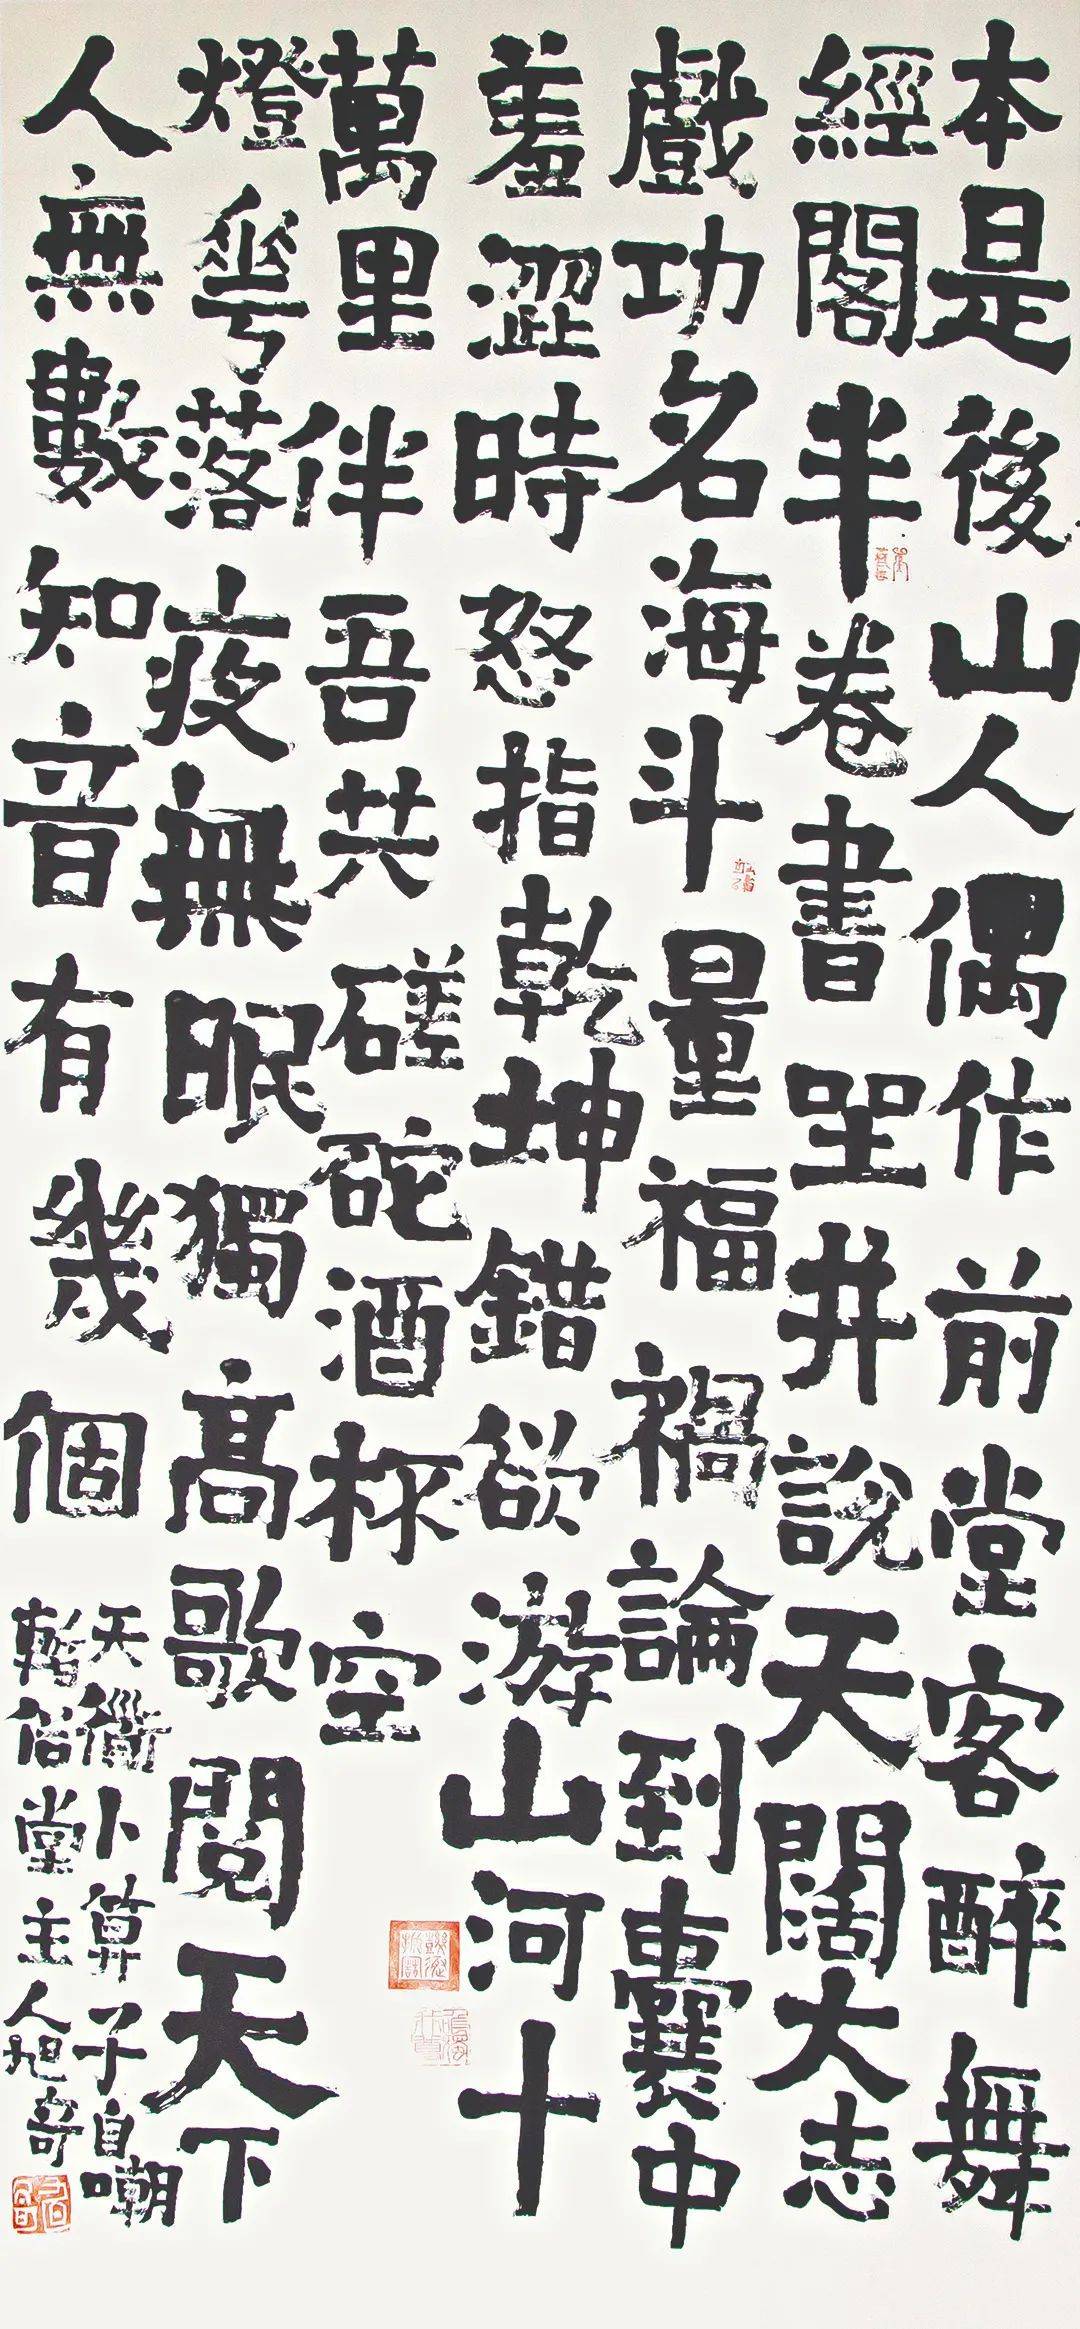 本是後山人偶作前堂客醉舞
經閣半卷書坐井説天闊大志
戲功名海斗量福禍論到囊中
羞澀時怒指乾坤錯欲游山河十
萬里伴吾共磋砣酒杯空
燈華落夜無眠獨高歌閲天下
人無數知音有幾個
天衜卜算子自嘲
俗堂主人旭奇